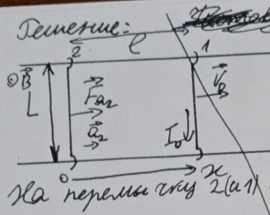 Решение:
2 l 1
⊙B⃗ V⃗₀
L F⃗a₂ I₀
a⃗₂
0 x
На перемычку 2(и 1)